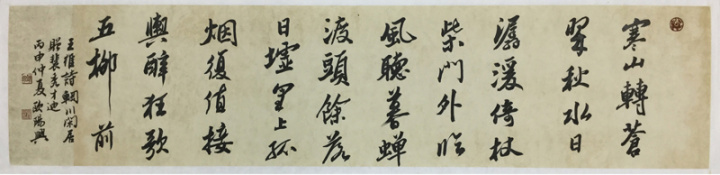 寒山轉蒼
翠秋水日
潺湲倚杖
柴門外臨
風聽暮蟬
渡頭餘落
日墟里上孤
烟復值接
輿醉狂歌
五柳前
王維詩輞川閑居
贈裴秀才迪
丙申仲夏歐陽興